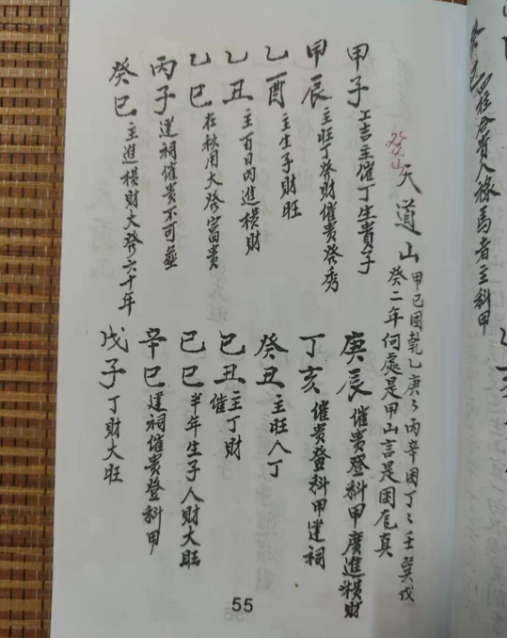 癸巳
貴人祿馬者主科甲
癸山
天道山 甲己固乾乙庚
丙辛因丁
壬巽戊
癸二年何處是甲山言是因
真
甲子 工吉主催丁生貴子
甲辰 主旺丁發財催貴發秀
乙酉 主生子財旺
乙丑 主百日內進横財
乙巳 在秋用大發富貴
丙子 建祠催貴不可葬
癸巳 主進横財大發六十年
庚辰 催貴登科甲廣進横財
丁亥 催貴登科甲建祠
癸丑 主旺人丁
己丑 主丁財
催
己巳 半年生子人財大旺
辛巳 建祠催貴登科甲
戊子 丁財大旺
55